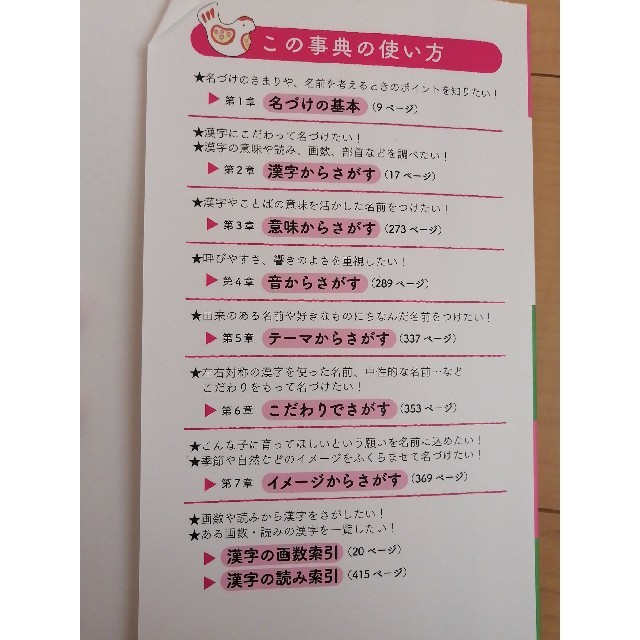 この事典の使い方
★名づけのきまりや、名前を考えるときのポイントを知りたい！
▶ 第1章 名づけの基本 (9ページ)
★漢字にこだわって名づけたい！
★漢字の意味や読み、画数、部首などを調べたい！
▶ 第2章 漢字からさがす (17ページ)
★漢字やことばの意味を活かした名前をつけたい！
▶ 第3章 意味からさがす (273ページ)
★呼びやすさ、響きのよさを重視したい！
▶ 第4章 音からさがす (289ページ)
★由来のある名前や好きなものにちなんだ名前をつけたい！
▶ 第5章 テーマからさがす (337ページ)
★左右対称の漢字を使った名前、中性的な名前…など
こだわりをもって名づけたい！
▶ 第6章 こだわりでさがす (353ページ)
★こんな子に育ってほしいという願いを名前に込めたい！
★季節や自然などのイメージをふくらませて名づけたい！
▶ 第7章 イメージからさがす (369ページ)
★画数や読みから漢字をさがしたい！
★ある画数・読みの漢字を一覧したい！
▶ 漢字の画数索引 (20ページ)
▶ 漢字の読み索引 (415ページ)